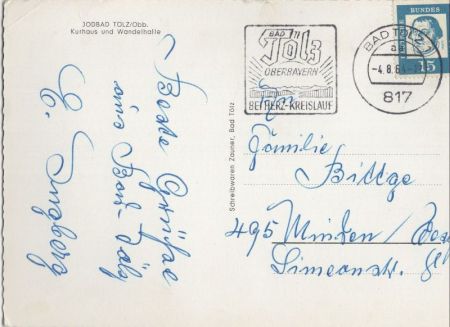 JODBAD TÖLZ/Obb.
Kurhaus und Wandelhalle
Beste Grüße
aus Bad Tölz
Ingeborg
Schreibwaren Zauner, Bad Tölz
BAD
Tölz
OBERBAYERN
BEI HERZ-KREISLAUF
BAD TÖLZ
-4.8.6
817
BUNDES
15
An
Familie
Biltge
495 Minden
Simeonstr.